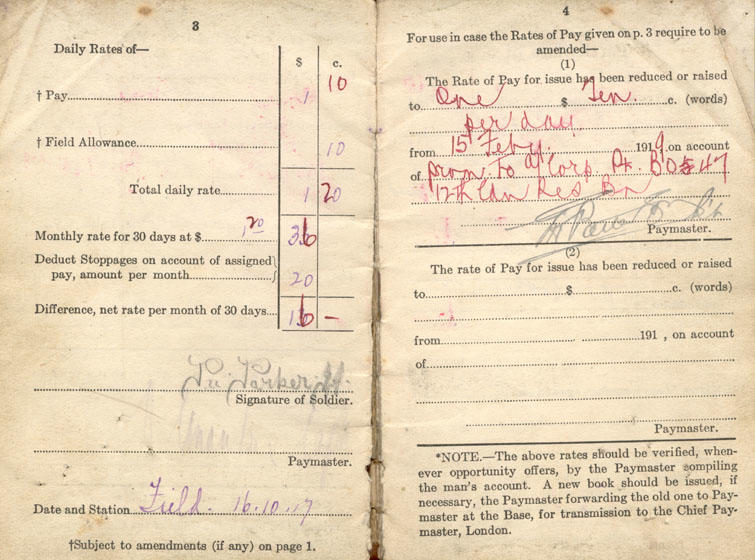 3
Daily Rates of—
$ c.
† Pay 1 10
† Field Allowance 10
Total daily rate 1 20
Monthly rate for 30 days at $ 1.20 36
Deduct Stoppages on account of assigned
pay, amount per month 20
Difference, net rate per month of 30 days 16 —
Parker
Signature of Soldier.
Paymaster.
Date and Station Field. 16.10.17
†Subject to amendments (if any) on page 1.
4
For use in case the Rates of Pay given on p. 3 require to be
amended—
(1)
The Rate of Pay for issue has been reduced or raised
to One $ Ten. c. (words)
per day
from 15 Feby. 1919, on account
of prom to a/Corp Pt. BO 47
12th Can Res Bn
Paymaster.
(2)
The rate of Pay for issue has been reduced or raised
to $ c. (words)
from 191 , on account
of
Paymaster.
*NOTE.—The above rates should be verified, when-
ever opportunity offers, by the Paymaster compiling
the man's account. A new book should be issued, if
necessary, the Paymaster forwarding the old one to Pay-
master at the Base, for transmission to the Chief Pay-
master, London.